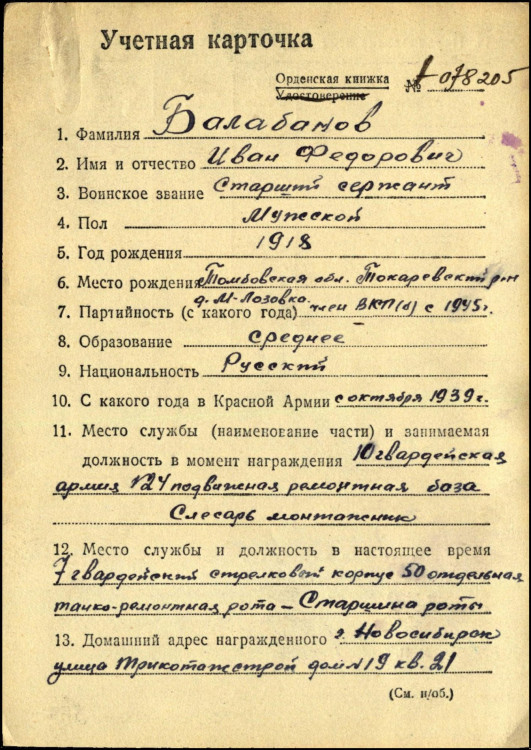 Учетная карточка
Орденская книжка
Удостоверение
№ 1-078205
1. Фамилия Балабанов
2. Имя и отчество Иван Федорович
3. Воинское звание Старший сержант
4. Пол Мужской
5. Год рождения 1918
6. Место рождения Томбовская обл. Токаревский р-н
д. М-Лозовка
7. Партийность (с какого года) член ВКП(б) с 1945г.
8. Образование среднее
9. Национальность Русский
10. С какого года в Красной Армии с октября 1939г.
11. Место службы (наименование части) и занимаемая
должность в момент награждения 10 гвардейская
армия №24 подвижная ремонтная база
Слесарь монтажник
12. Место службы и должность в настоящее время
7 гвардейский стрелковый корпус 50 отдельная
танко-ремонтная рота - Старшина роты
13. Домашний адрес награжденного г. Новосибирск
улица Трикотажстрой дом №19 кв. 21
(См. н/об.)